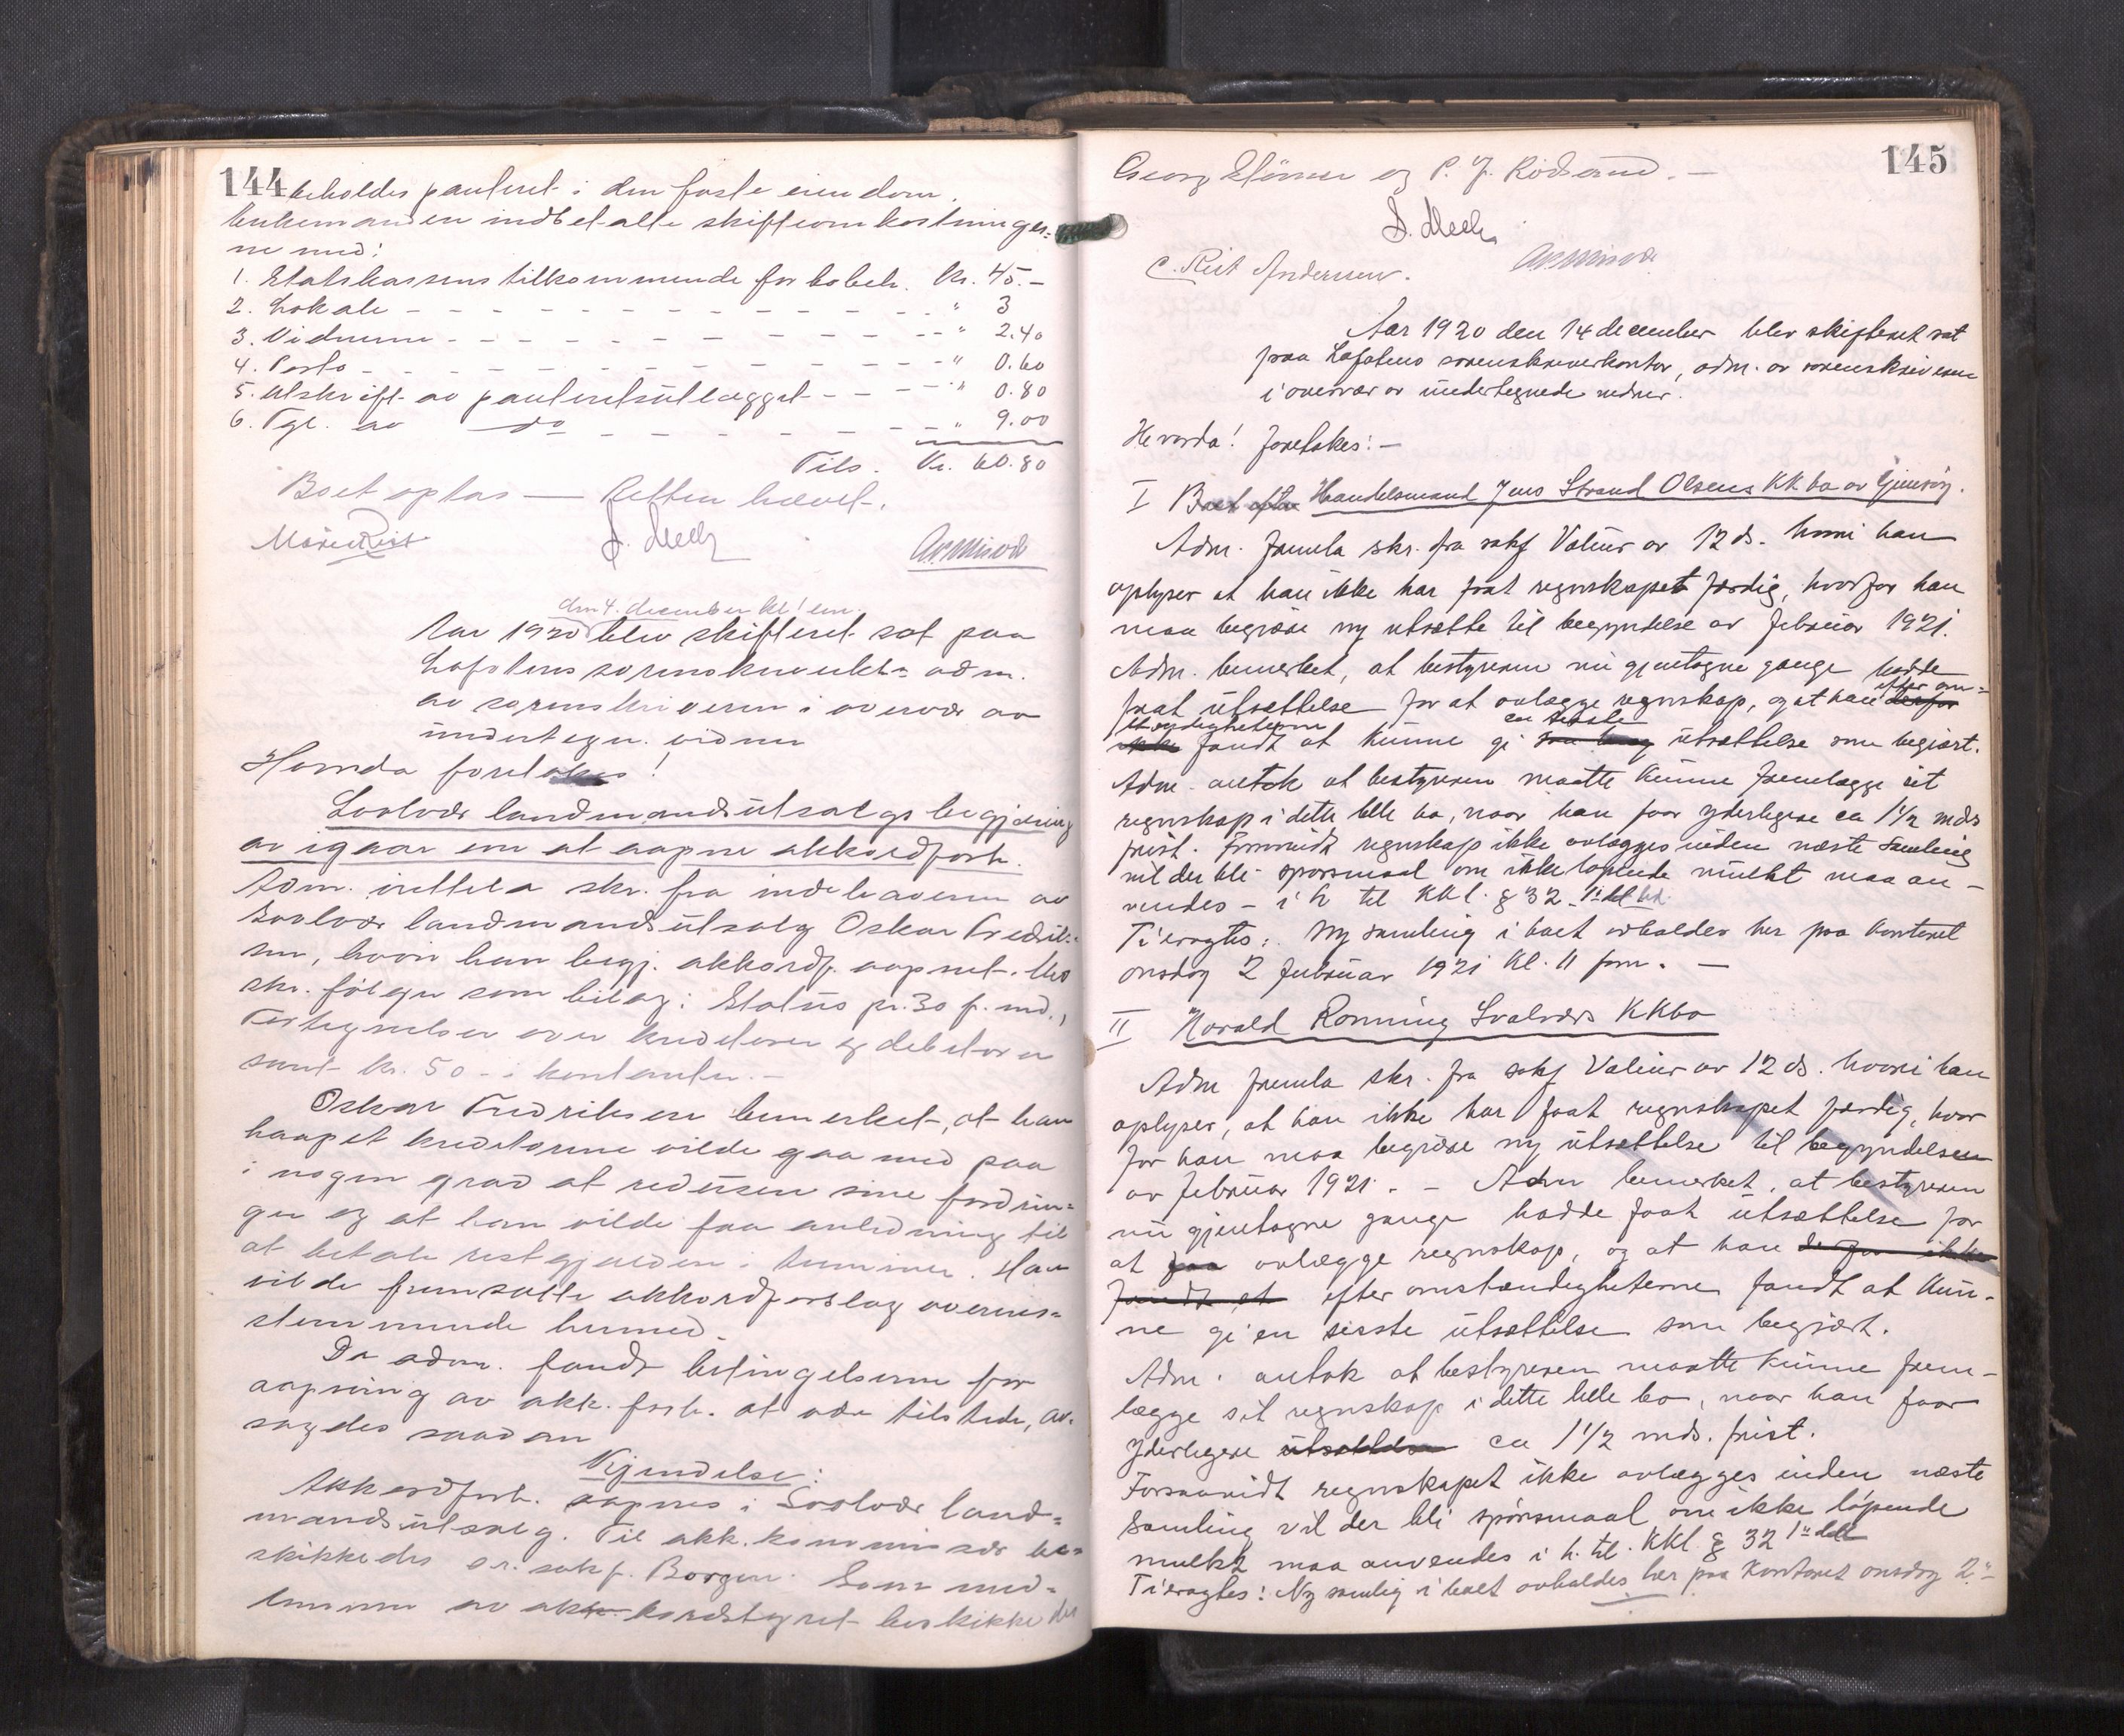 144 beholdes panteret i den faste eiendom.
Enkemanden indbetalte skifteomkostninger=
ne med:
1. Statskassens tilkommende for bobeh. Kr. 45.-
2. Lokale - - - - " 3
3. Vidnerne - - - - " 2.40
4. Porto - - - - " 0.60
5. Utskrift av panteretsutlægget - - - " 0.80
6. Tgl. av do - - - - " 9.00
Tils. Kr. 60.80
Boet optas — Retten hævet.
den 4. december kl. 1 em.
Aar 1920 blev skifteret sat paa
Lofotens sorenskriverkt= adm.
av sorenskriveren i overvær av
undertegn. vidner
Hvorda foretokes!
Svolvær landmandsutsalgs begjæring
av igaar om at aapne akkordforh.
Adm. irettela skr. fra indehaveren av
Svolvær landmandsutsalg Oskar Fredrik=
sen, hvori han begj. akkordf. aapnet. Med
skr. følger som bilag: Status pr. 30 f. md.,
Fortegnelser over kreditorer og debitorer
samt kr. 50 - i kontanter. -
Oskar Fredriksen bemerket, at han
haapet kreditorerne vilde gaa med paa
i nogen grad at redusere sine fordrin=
ger og at han vilde faa anledning til
at betale restgjælden i terminer. Han
vilde fremsætte akkordforslag overens=
stemmende hermed.
Da adm. fandt betingelserne for
aapning av akk. forh. at være tilstede, av=
sagdes saadan
Kjendelse:
Akkordforh. aapnes i Svolvær land=
mandsutsalg. Til akk. kommissær be=
skikkedes o.r. sakf. Borgen. Som med=
lemmer av akkordstyret beskikkedes
145
Georg Størmer og P. J. Rødsand. —
C. Riit Andersen.
Aar 1920 den 14 december blev skifteret sat
paa Lofotens sorenskriverkontor, adm. av sorenskriveren
i overvær av undertegnede vidner.
Hvorda! foretokes: —
I Boet efter Handelsmand Jens Strand Olsens KKbo av Gimsøy.
Adm. fremla skr. fra sakf Valeur av 12 ds. hvori han
oplyser at han ikke har faat regnskapet færdig, hvorfor han
maa begjære ny utsætte til begyndelse av februar 1921.
Adm. bemerket, at bestyreren nu gjentagne gange hadde
faat utsættelse for at avlægge regnskap, og at han derfor efter om=
stændigheterne ikke fandt at kunne gi en sidste utsættelse som begjært.
Adm. antok at bestyreren maatte kunne fremlægge sit
regnskap i dette lille bo, naar han faar yderligere ca 1 1/2 mds
frist. Forsaavidt regnskap ikke avlægges inden næste samling
vil der bli spørsmaal om ikke løpende mulkt maa an -
vendes - i h til KKl. § 32 - 1ste led.
Ti eragtes: Ny samling i boet avholdes her paa kontoret
onsdag 2 februar 1921 kl. 11 fm. —
II Harald Rønning Svolværs KKbo
Adm fremla skr. fra sakf Valeur av 12 ds. hvori han
oplyser, at han ikke har faat regnskapet færdig, hvor
for han maa begjære ny utsættelse til begyndelsen
av februar 1921. - Adm bemerket, at bestyreren
nu gjentagne gange hadde faat utsættelse for
at faa avlægge regnskap, og at han derfor ikke
fandt at efter omstændigheterne fandt at kun-
ne gi en sidste utsættelse som begjært.
Adm. antok at bestyreren maatte kunne frem-
lægge sit regnskap i dette lille bo, naar han faar
yderligere utsættelse ca 1 1/2 mds. frist.
Forsaavidt regnskapet ikke avlægges inden næste
samling vil der bli spørsmaal om ikke løpende
mulkt maa anvendes i h. til KKl. § 32 1ste led
Ti eragtes: Ny samling i boet avholdes her paa kontoret onsdag 2